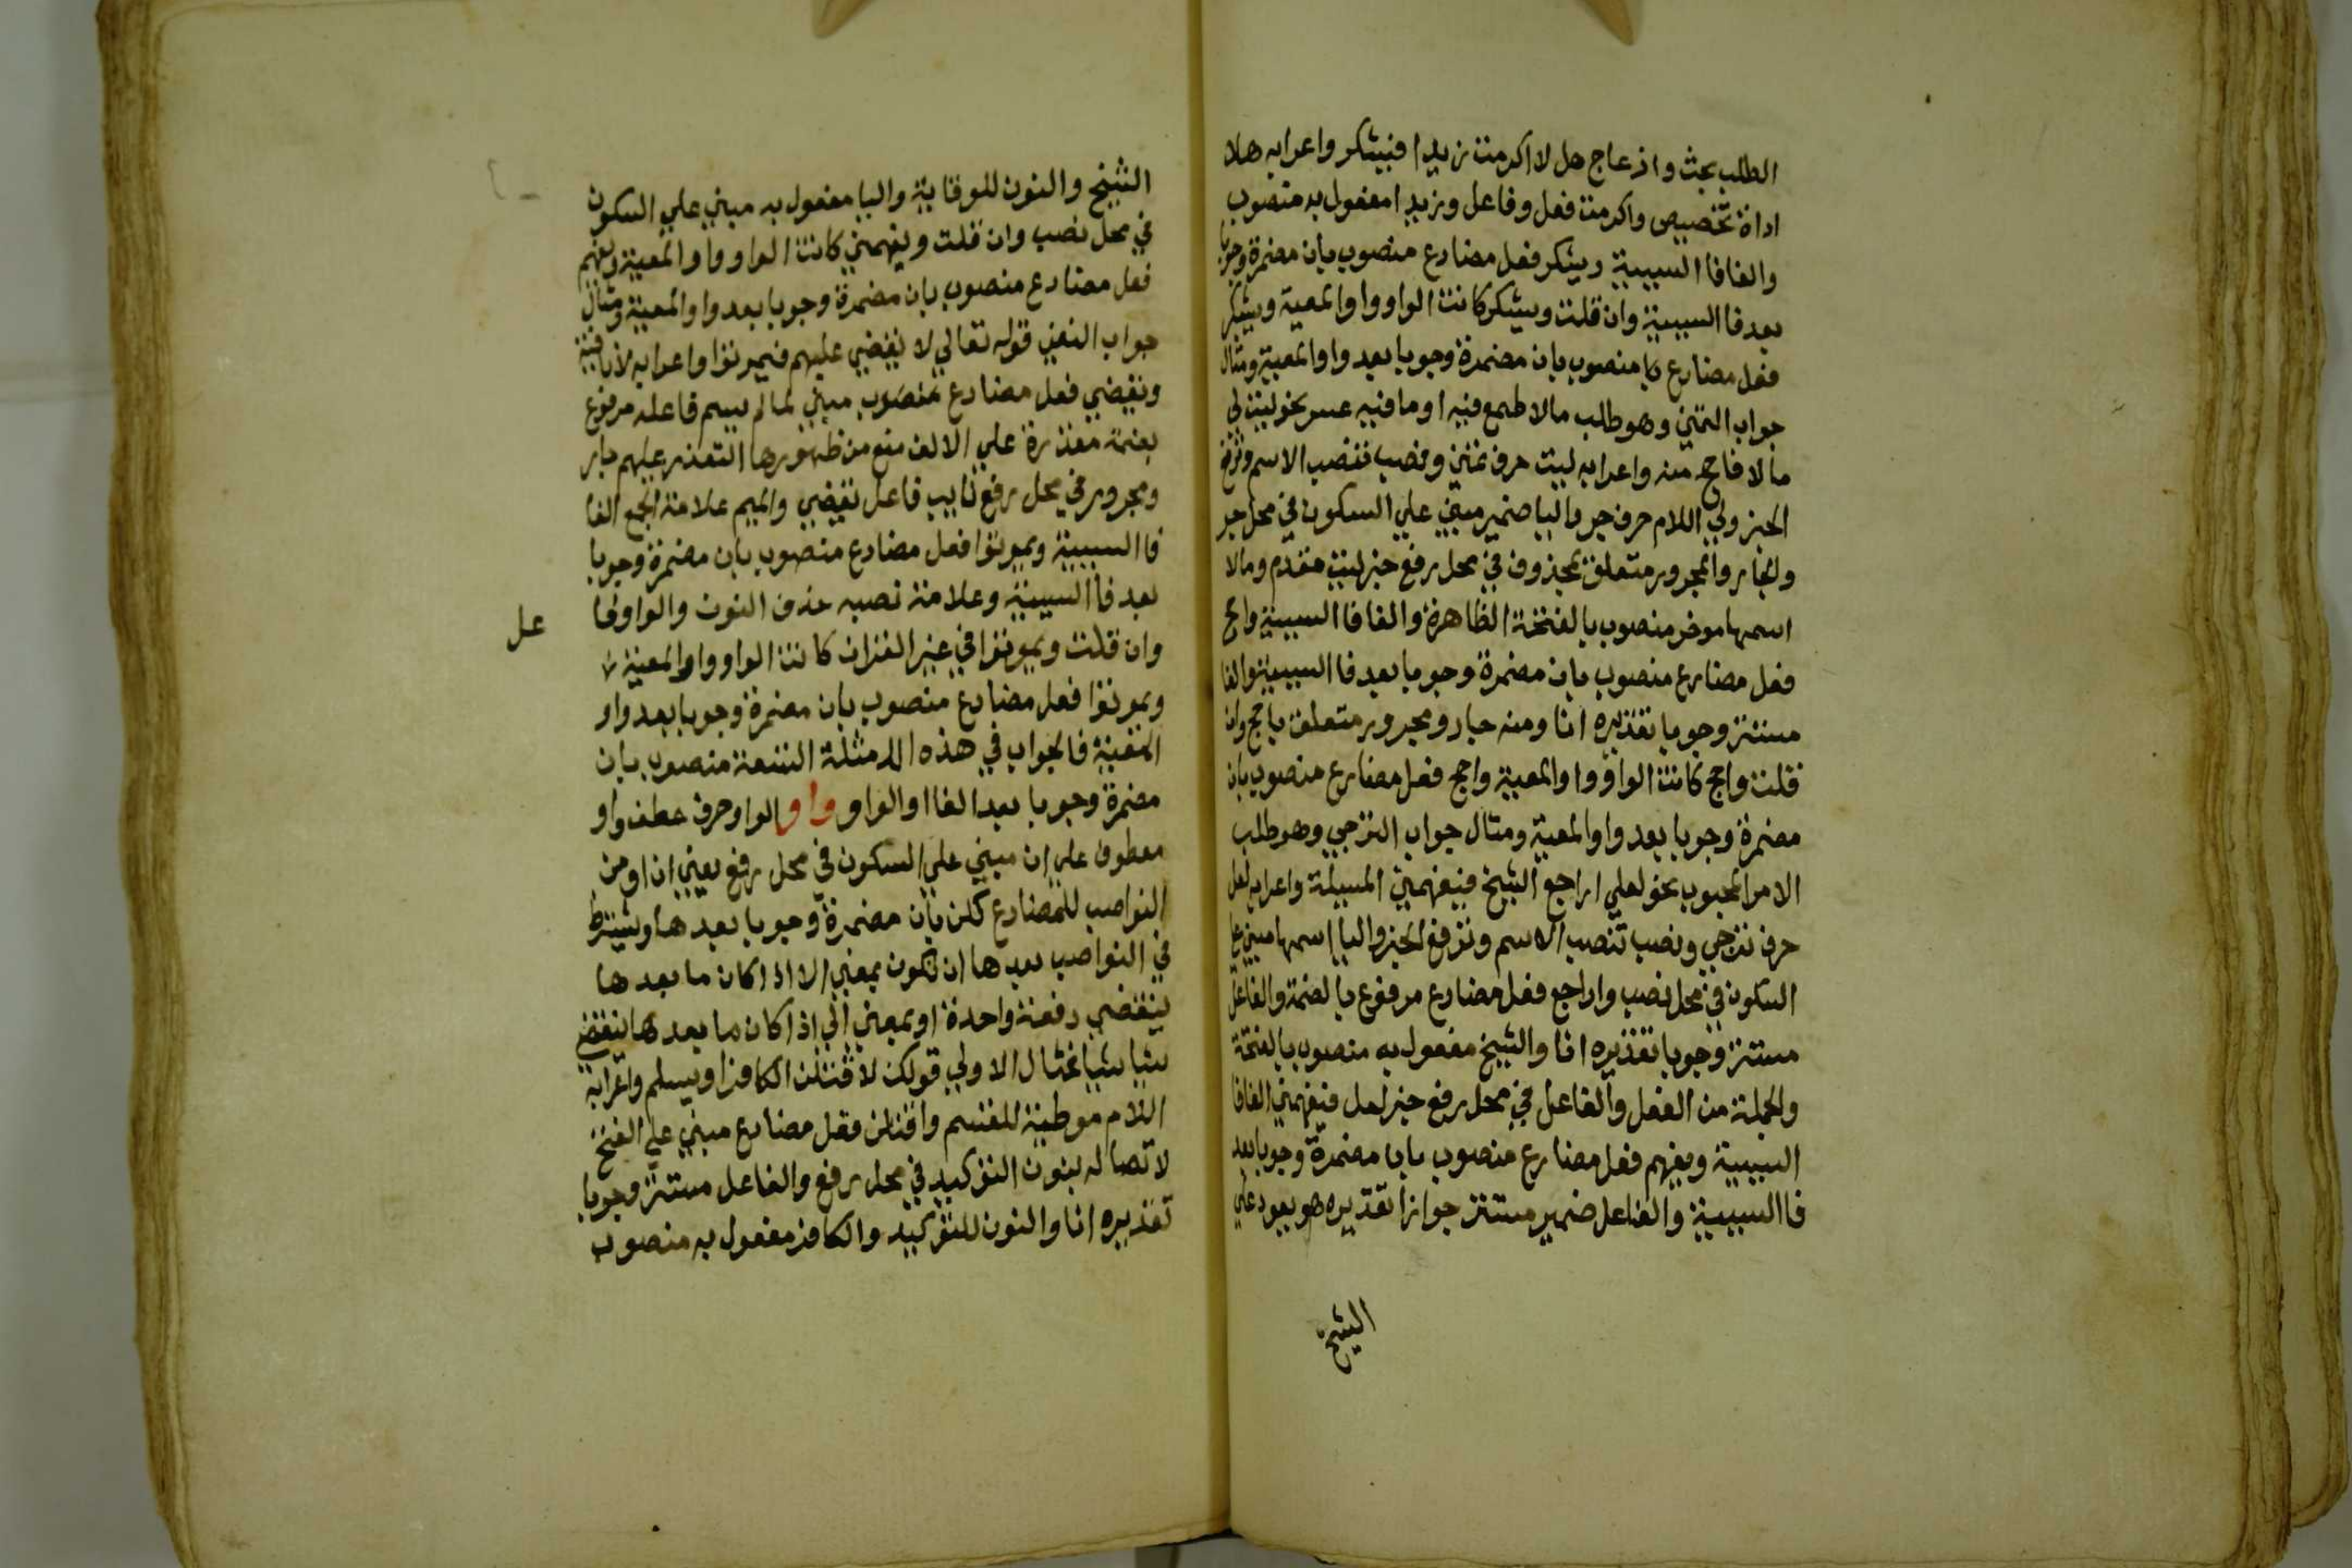 الطلب بحث وازعاج هل لا اكرمت زيدا فيشكر واعرابه هلا
اداة تخصيص واكرمت فعل وفاعل وزيدا مفعول به منصوب
والفا فا السببية ويشكر فعل مضارع منصوب بان مضمرة وجوبا
بعد فا السببية وان قلت ويشكر كانت الواو واو المعية ويشكر
فعل مضارع منصوب بان مضمرة وجوبا بعد واو المعية ومثال
جواب التمني وهو طلب مالا طمع فيه او ما فيه عسر نحو ليت لي
مالا فاحج منه واعرابه ليت حرف تمني ونصب تنصب الاسم وترفع
الخبر ولي اللام حرف جر واليا ضمير مبني علي السكون في محل جر
والجار والمجرور متعلق بمحذوف في محل رفع خبر ليت مقدم ومالا
اسمها موخر منصوب بالفتحة الظاهرة والفا فا السببية واحج
فعل مضارع منصوب بان مضمرة وجوبا بعد فا السببية والفا
مستتر وجوبا تقديره انا ومنه جار ومجرور متعلق باحج وان
قلت واحج كانت الواو واو المعية واحج فعل مضارع منصوب بان
مضمرة وجوبا بعد واو المعية ومثال جواب الترجي وهو طلب
الامر المحبوب نحو لعلي اراجع الشيخ فيفهمني المسيلة واعرابه لعل
حرف ترجي ونصب تنصب الاسم وترفع الخبر واليا اسمها مبني علي
السكون في محل نصب واراجع فعل مضارع مرفوع بالضمة والفاعل
مستتر وجوبا تقديره انا والشيخ مفعول به منصوب بالفتحة
والجملة من الفعل والفاعل في محل رفع خبر لعل فيفهمني الفا فا
السببية ويفهم فعل مضارع منصوب بان مضمرة وجوبا بعد
فا السببية والفاعل ضمير مستتر جوازا تقديره هو يعود علي
الشيخ
الشيخ والنون للوقاية واليا مفعول به مبني علي السكون
في محل نصب وان قلت ويفهمني كانت الواو واو المعية ويفهم
فعل مضارع منصوب بان مضمرة وجوبا بعد واو المعية ومثال
جواب النفي قوله تعالي لا يقضي عليهم فيموتوا واعرابه لا نافية
ويقضي فعل مضارع منصوب مبني لما لم يسم فاعله مرفوع
بضمة مقدرة علي الالف منع من ظهورها التعذر عليهم جار
ومجرور في محل رفع نايب فاعل يقضي والميم علامة الجمع الفا
فا السببية ويموتوا فعل مضارع منصوب بان مضمرة وجوبا
بعد فا السببية وعلامة نصبه حذف النون والواو فا
عل
وان قلت ويموتوا في غير القران كانت الواو واو المعية
ويموتوا فعل مضارع منصوب بان مضمرة وجوبا بعد واو
المعية فالجواب في هذه الامثلة التسعة منصوب بان
مضمرة وجوبا بعد الفا او الواو واو الواو حرف عطف واو
معطوف علي ان مبني علي السكون في محل رفع يعني ان او من
النواصب للمضارع لكن بان مضمرة وجوبا بعدها ويشترط
في النواصب بعدها ان تكون بمعني الا اذا كان ما بعدها
ينقضي دفعة واحدة او بمعني الي اذا كان ما بعدها ينقضي
شيا شيا فمثال الاولي قولك لاقتلن الكافر او يسلم واعرابه
اللام موطية للقسم واقتلن فعل مضارع مبني علي الفتح
لاتصاله بنون التوكيد في محل رفع والفاعل مستتر وجوبا
تقديره انا والنون للتوكيد والكافر مفعول به منصوب